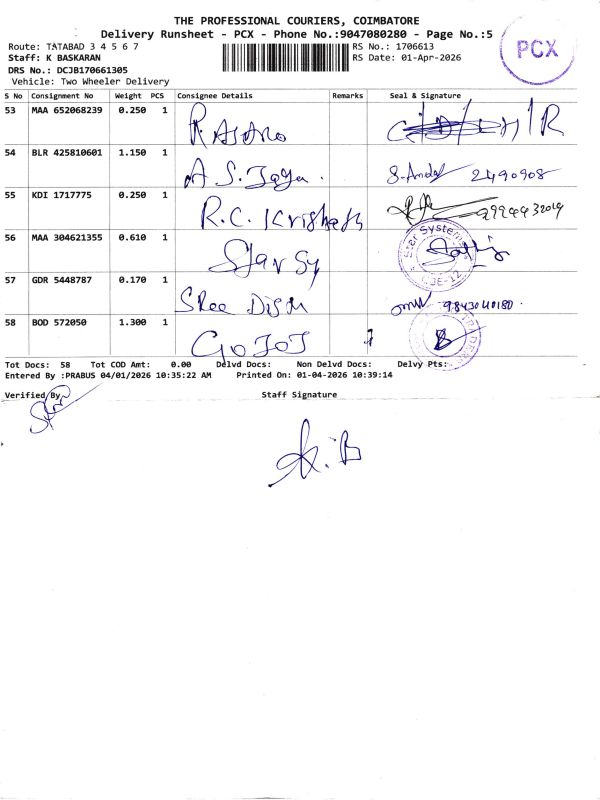 THE PROFESSIONAL COURIERS, COIMBATORE
Delivery Runsheet - PCX - Phone No.:9047080280 - Page No.:5
Route: TATABAD 3 4 5 6 7
RS No.: 1706613
Staff: K BASKARAN
RS Date: 01-Apr-2026
DRS No.: DCJB170661305
Vehicle: Two Wheeler Delivery
PCX
S No Consignment No Weight PCS Consignee Details Remarks Seal & Signature
53 MAA 652068239 0.250 1
54 BLR 425810601 1.150 1 A S. Jaya. 2490908
55 KDI 1717775 0.250 1 R.C. Krishna
56 MAA 304621355 0.610 1 Star Sy Star Systems CBE-12
57 GDR 5448787 0.170 1 Sree 9843040180
58 BOD 572050 1.300 1 TRADERS
Tot Docs: 58 Tot COD Amt: 0.00 Delvd Docs: Non Delvd Docs: Delvy Pts:
Entered By :PRABUS 04/01/2026 10:35:22 AM Printed On: 01-04-2026 10:39:14
Verified By
Staff Signature
K. B